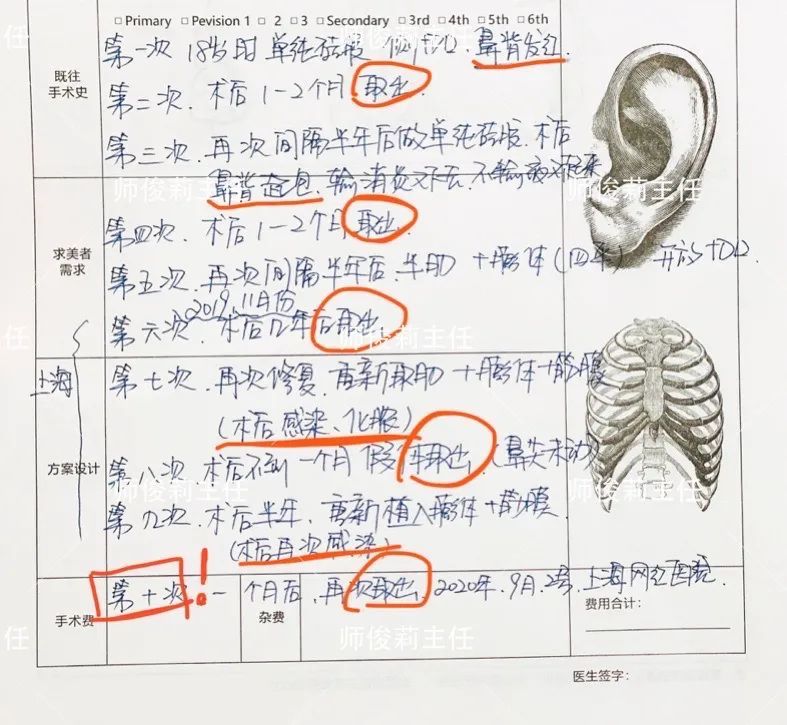 □ Primary □ Pevision 1 □ 2 □ 3 □ Secondary □ 3rd □ 4th □ 5th □ 6th
既往
手术史
第一次 18岁时 单纯硅胶 切口 鼻背发红.
第二次. 术后1-2个月取出.
第三次. 再次间隔半年后做单纯硅胶. 术后
鼻背起包. 输消炎 不输液又起来
师俊莉主任
求美者
需求
第四次. 术后1-2个月取出.
第五次. 再次间隔半年后. 半肋 +膨体
2019. 11月份
第六次. 术后几年后取出
师俊莉主任
上海
第七次. 再次修复. 重新取肋 +膨体+筋膜
(术后感染、化脓)
方案设计
第八次. 术后不到一个月 假体取出. (鼻尖未动)
师俊莉主任
第九次. 术后半年. 重新植入膨体+筋膜.
(术后再次感染)
手术费
第十次! 一个月后, 再次取出. 2020年. 9月. 2号. 上海网红医院.
杂费
费用合计:
师俊莉主任
医生签字: